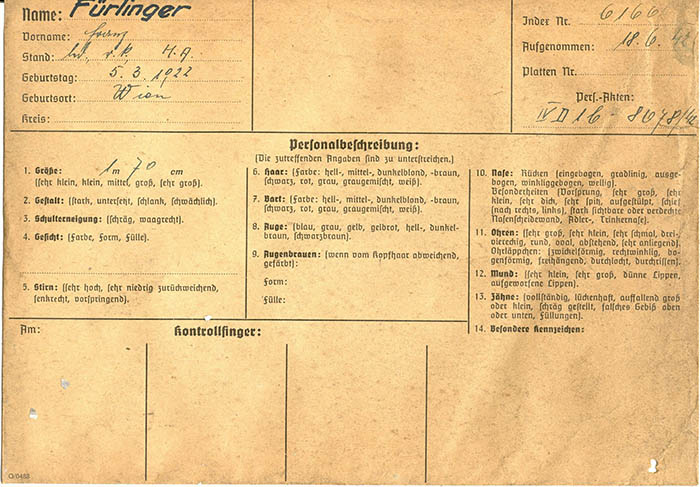 Name: Fürlinger
Vorname: Franz
Stand: led. r.k. H.A.
Geburtstag: 5.3.1922
Geburtsort: Wien
Kreis:
Index Nr. 6166
Aufgenommen: 18.6.42
Platten Nr.
Pers.-Akten:
IV D 1b - 8678/42
Personalbeschreibung:
(Die zutreffenden Angaben sind zu unterstreichen.)
1. Größe: 1 m 70 cm
(sehr klein, klein, mittel, groß, sehr groß).
2. Gestalt: (stark, untersetzt, schlank, schwächlich).
3. Schulterneigung: (schräg, waagrecht).
4. Gesicht: (Farbe, Form, Fülle).
5. Stirn: (sehr hoch, sehr niedrig zurückweichend,
senkrecht, vorspringend).
6. Haar: (Farbe: hell-, mittel-, dunkelblond, -braun,
schwarz, rot, grau, graugemischt, weiß).
7. Bart: (Farbe: hell-, mittel-, dunkelblond, -braun,
schwarz, rot, grau, graugemischt, weiß).
8. Auge: (blau, grau, gelb, gelbrot, hell-, dunkel-
braun, schwarzbraun).
9. Augenbrauen: (wenn vom Kopfhaar abweichend,
gefärbt):
Form:
Fülle:
10. Nase: Rücken (eingebogen, gradlinig, ausge-
bogen, winkliggebogen, wellig).
Besonderheiten (Vorsprung, sehr groß, sehr
klein, sehr dick, sehr spitz, aufgestülpt, schief
(nach rechts, links), stark sichtbare oder verdeckte
Nasenscheidewand, Adler-, Trinkernase).
11. Ohren: (sehr groß, sehr klein, sehr schmal, drei-
viereckig, rund, oval, abstehend, sehr anliegend).
Ohrläppchen: (zwickelförmig, rechtwinklig, bo-
genförmig, freihängend, durchlocht, durchrissen).
12. Mund: (sehr klein, sehr groß, dünne Lippen,
aufgeworfene Lippen).
13. Zähne: (vollständig, lückenhaft, auffallend groß
oder klein, schräg gestellt, falsches Gebiß oben
oder unten, Füllungen).
14. Besondere Kennzeichen:
Am:
Kontrollfinger: